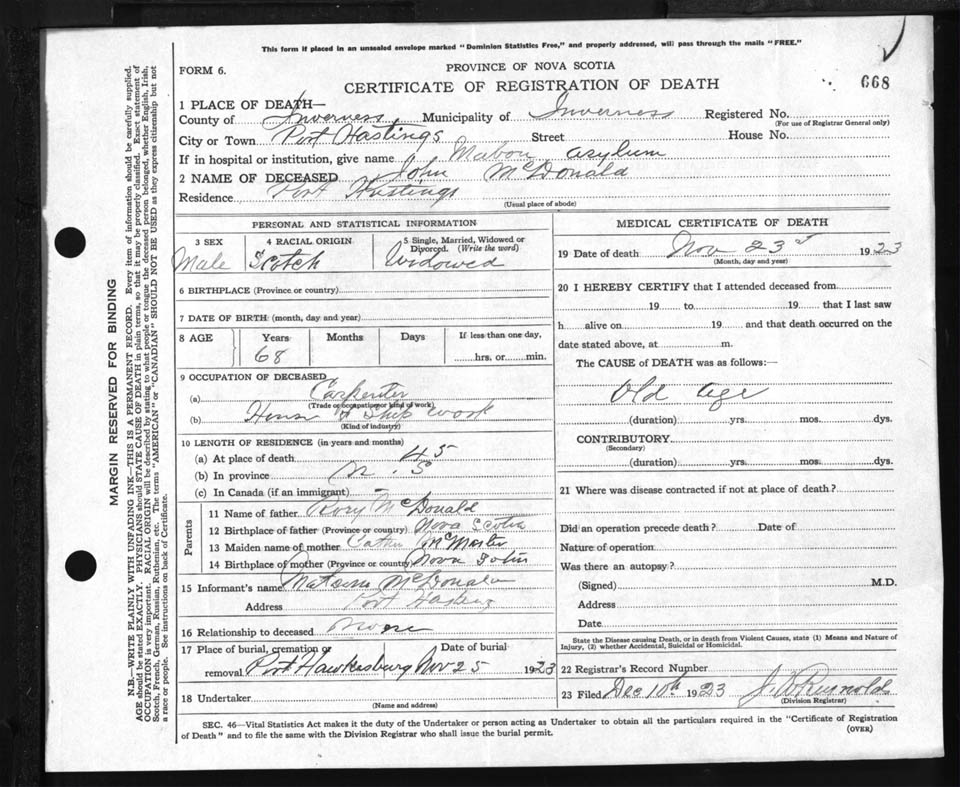 This form if placed in an unsealed envelope marked "Dominion Statistics Free," and properly addressed, will pass through the mails "FREE."
FORM 6.
PROVINCE OF NOVA SCOTIA
CERTIFICATE OF REGISTRATION OF DEATH
668
1 PLACE OF DEATH—
County of Inverness, Municipality of Inverness Registered No.
(For use of Registrar General only)
City or Town Port Hastings Street House No.
If in hospital or institution, give name Mabou asylum
2 NAME OF DECEASED John McDonald
Residence Port Hastings
(Usual place of abode)
PERSONAL AND STATISTICAL INFORMATION
3 SEX Male
4 RACIAL ORIGIN Scotch
5 Single, Married, Widowed or Divorced. (Write the word) Widowed
6 BIRTHPLACE (Province or country)
7 DATE OF BIRTH: (month, day and year)
8 AGE Years 68 Months Days If less than one day, hrs. or min.
9 OCCUPATION OF DECEASED
(a) Carpenter
(Trade or occupation or kind of work)
(b) & Ship work
(Kind of industry)
10 LENGTH OF RESIDENCE (in years and months)
(a) At place of death 45
(b) In province N. S
(c) In Canada (if an immigrant) –
Parents
11 Name of father Rory McDonald
12 Birthplace of father (Province or country) Nova Scotia
13 Maiden name of mother McMaster
14 Birthplace of mother (Province or country) Nova
15 Informant's name McDonald
Address Port Hastings
16 Relationship to deceased
17 Place of burial, cremation or removal Port Hawkesburg Date of burial Nov 25 1923
18 Undertaker
(Name and address)
MEDICAL CERTIFICATE OF DEATH
19 Date of death Nov 23 1923
(Month, day and year)
20 I HEREBY CERTIFY that I attended deceased from
19 to 19 that I last saw
h alive on 19 and that death occurred on the
date stated above, at m.
The CAUSE of DEATH was as follows:—
Old age
(duration) yrs. mos. dys.
CONTRIBUTORY
(Secondary)
(duration) yrs. mos. dys.
21 Where was disease contracted if not at place of death?
Did an operation precede death? Date of
Nature of operation
Was there an autopsy?
(Signed) M.D.
Address
Date
State the Disease causing Death, or in death from Violent Causes, state (1) Means and Nature of
Injury, (2) whether Accidental, Suicidal or Homicidal.
22 Registrar's Record Number
23 Filed Dec 10th 1923 J. D Reynolds
(Division Registrar)
SEC. 46—Vital Statistics Act makes it the duty of the Undertaker or person acting as Undertaker to obtain all the particulars required in the "Certificate of Registration
of Death" and to file the same with the Division Registrar who shall issue the burial permit.
(OVER)
MARGIN RESERVED FOR BINDING
N.B.—WRITE PLAINLY WITH UNFADING INK—THIS IS A PERMANENT RECORD. Every item of information should be carefully supplied.
AGE should be stated EXACTLY. PHYSICIANS should STATE CAUSE OF DEATH in plain terms, so that it may be properly classified. Exact statement of
OCCUPATION is very important. RACIAL ORIGIN will be described by stating to what people or tongue the deceased person belonged, whether English, Irish,
Scotch, French, German, Russian, Ruthenian, etc. The terms "AMERICAN" or "CANADIAN" SHOULD NOT BE USED as they express citizenship but not
a race or people. See instructions on back of Certificate.